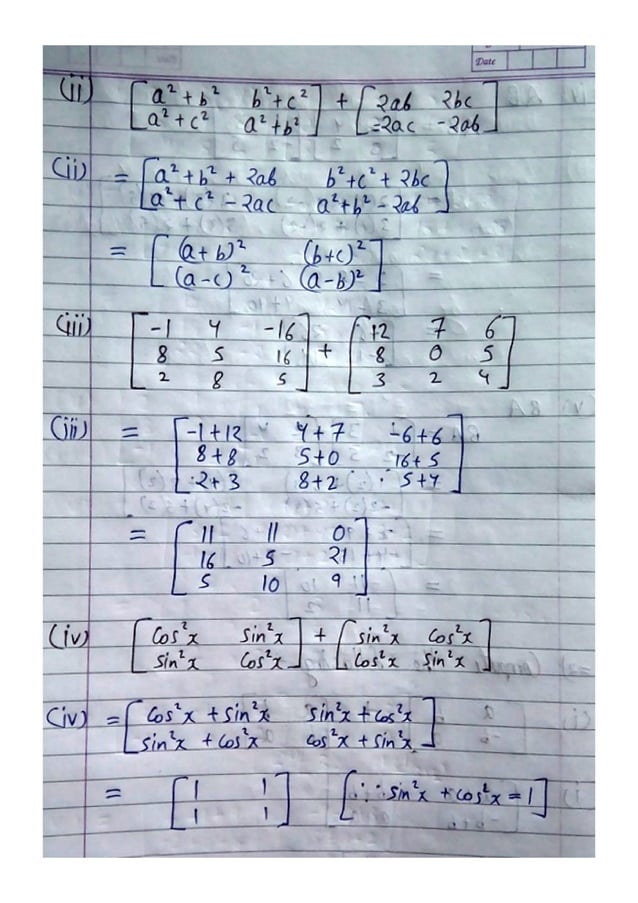 Date
(ii) [a² + b² b² + c²] + [2ab 2bc]
[a² + c² a² + b²] [-2ac -2ab]
(ii) = [a² + b² + 2ab b² + c² + 2bc]
[a² + c² - 2ac a² + b² - 2ab]
= [(a + b)² (b + c)²]
[(a - c)² (a - b)²]
(iii) [-1 4 -16] + [12 7 6]
[8 5 16] [8 0 5]
[2 8 5] [3 2 4]
(iii) = [-1+12 4+7 -6+6]
[8+8 5+0 16+5]
[2+3 8+2 5+4]
= [11 11 0]
[16 5 21]
[5 10 9]
(iv) [cos²x sin²x] + [sin²x cos²x]
[sin²x cos²x] [cos²x sin²x]
(iv) = [cos²x + sin²x sin²x + cos²x]
[sin²x + cos²x cos²x + sin²x]
= [1 1] [∵ sin²x + cos²x = 1]
[1 1]